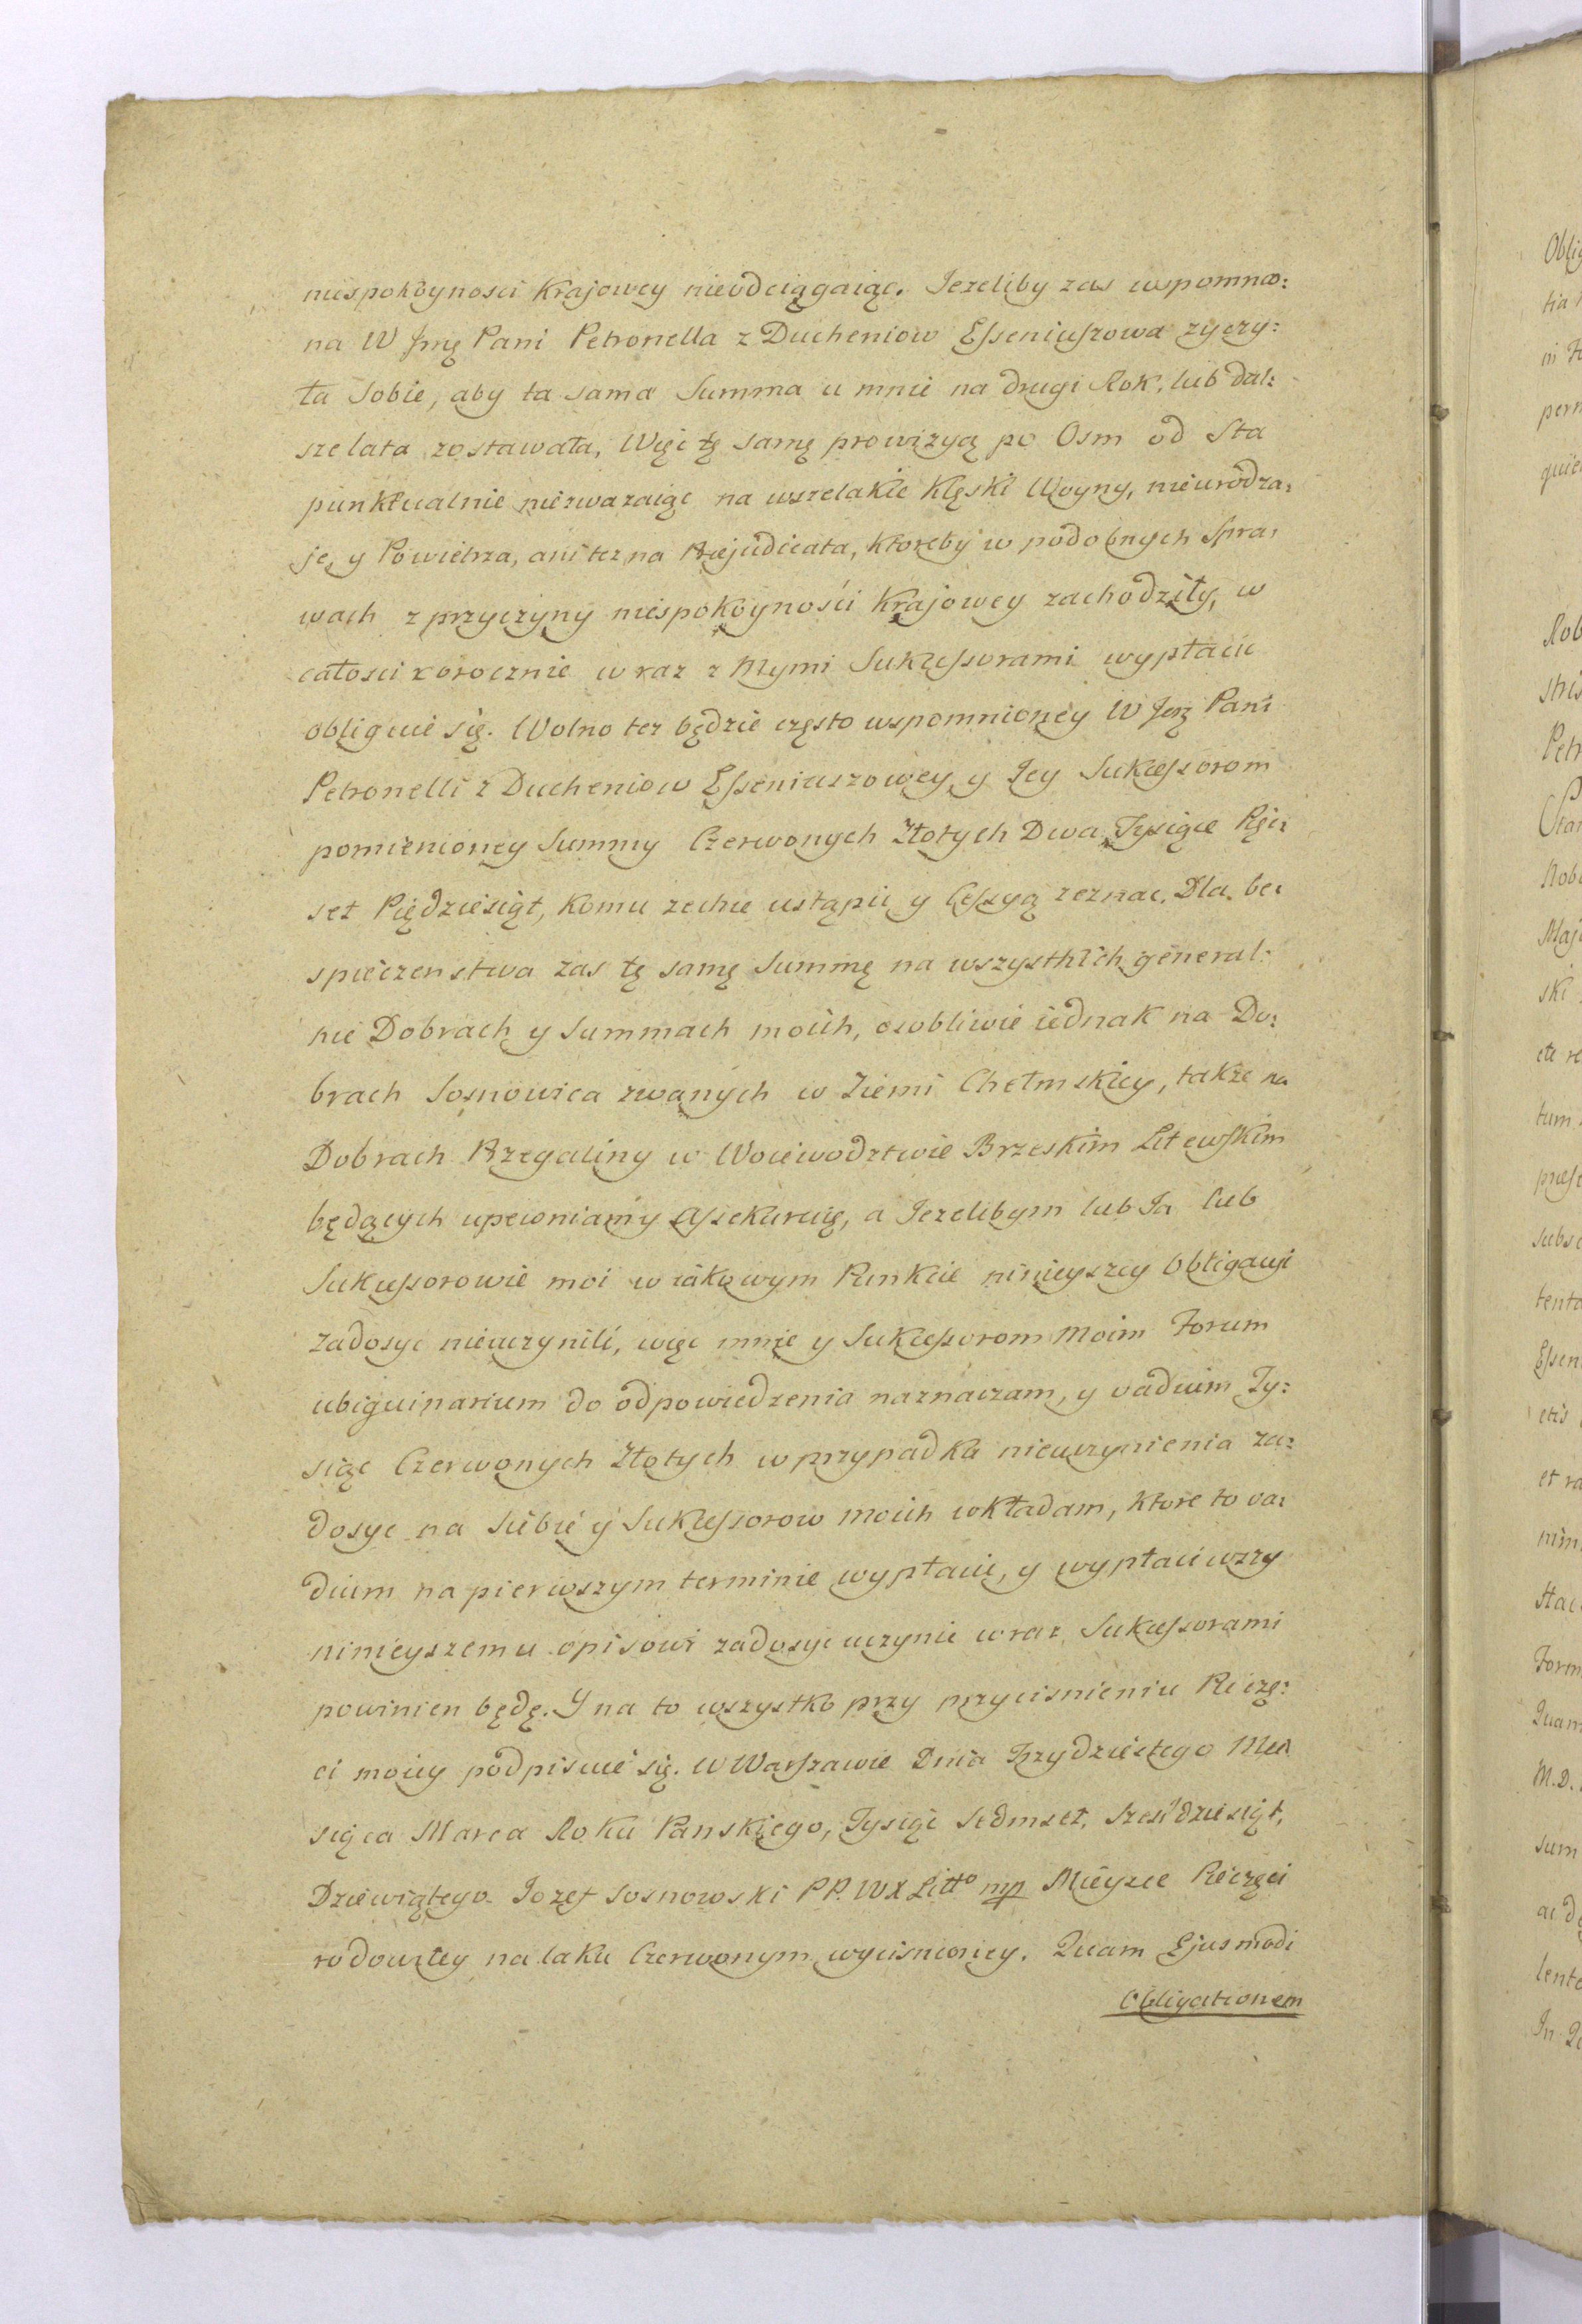 niespokoynosci Krajowey nieodciągaiąc. Jezeliby zas wspomnio:
na W Jmę Pani Petronella z Ducheniow Esseniuszowa zyczy:
ła sobie, aby ta sama Summa u mnie na drugi Rok, lub dal:
sze lata zostawała, Więc tę samę prowizyą po Osm od Sta
punktualnie niezwazaiąc na wszelakie Klęski Woyny, nieurodza:
je, y Powietrza, ani tez na Prejudicata, ktoreby w podobnych Spra:
wach z przyczyny niespokoyności Krajowey zachodziły, w
całosci corocznie wraz z Mymi Sukcessorami wypłacic
obliguie się. Wolno tez będzie często wspomnioney W Jmę Pani
Petronelli z Ducheniow Esseniuszowey, y Jey Sukcessorom
pomienioney Summy Czerwonych Złotych Dwa Tysiące Pięc:
set Piędziesiąt, Komu zechce ustąpic y Cessyą zeznac. Dla be:
spieczenstwa zas tę samę Summę na wszystkich general:
nie Dobrach y Summach moich, osobliwie iednak na Do:
brach Sosnowica zwanych w Ziemi Chełmskiey, takze na
Dobrach Przegaliny w Woiewodztwie Brzeskim Litewskim
będących upewniam y assekuruię, a Jezelibym lub Ja lub
Sukcessorowie moi w iakowym Punkcie ninieyszey Obligacyi
zadosyc nieuczynili, więc mnie y Sukcessorom moim Forum
ubiquinarium do odpowiedzenia naznaczam, y vadium Ty:
siąc Czerwonych Złotych w przypadku nieuczynienia za:
dosyc na siebie y Sukcessorow moich wkładam, ktore to va:
dium na pierwszym terminie wypłacic, y wypłaciwszy
ninieyszemu opisowi zadosyc uczynic wraz Sukcessorami
powinien będę. Y na to wszystko przy przycisnieniu Pieczę:
ci moiey podpisuie się. W Warszawie Dnia Trzydziestego Mie:
siąca Marca Roku Panskiego, Tysiąc Siedmset, Sześćdziesiąt,
Dziewiątego. Jozef Sosnowski P P. W X Litto mp Mieysce Pieczęci
rodowitey na laku Czerwonym wycisnioney. Quam Ejusmodi
Obligationem